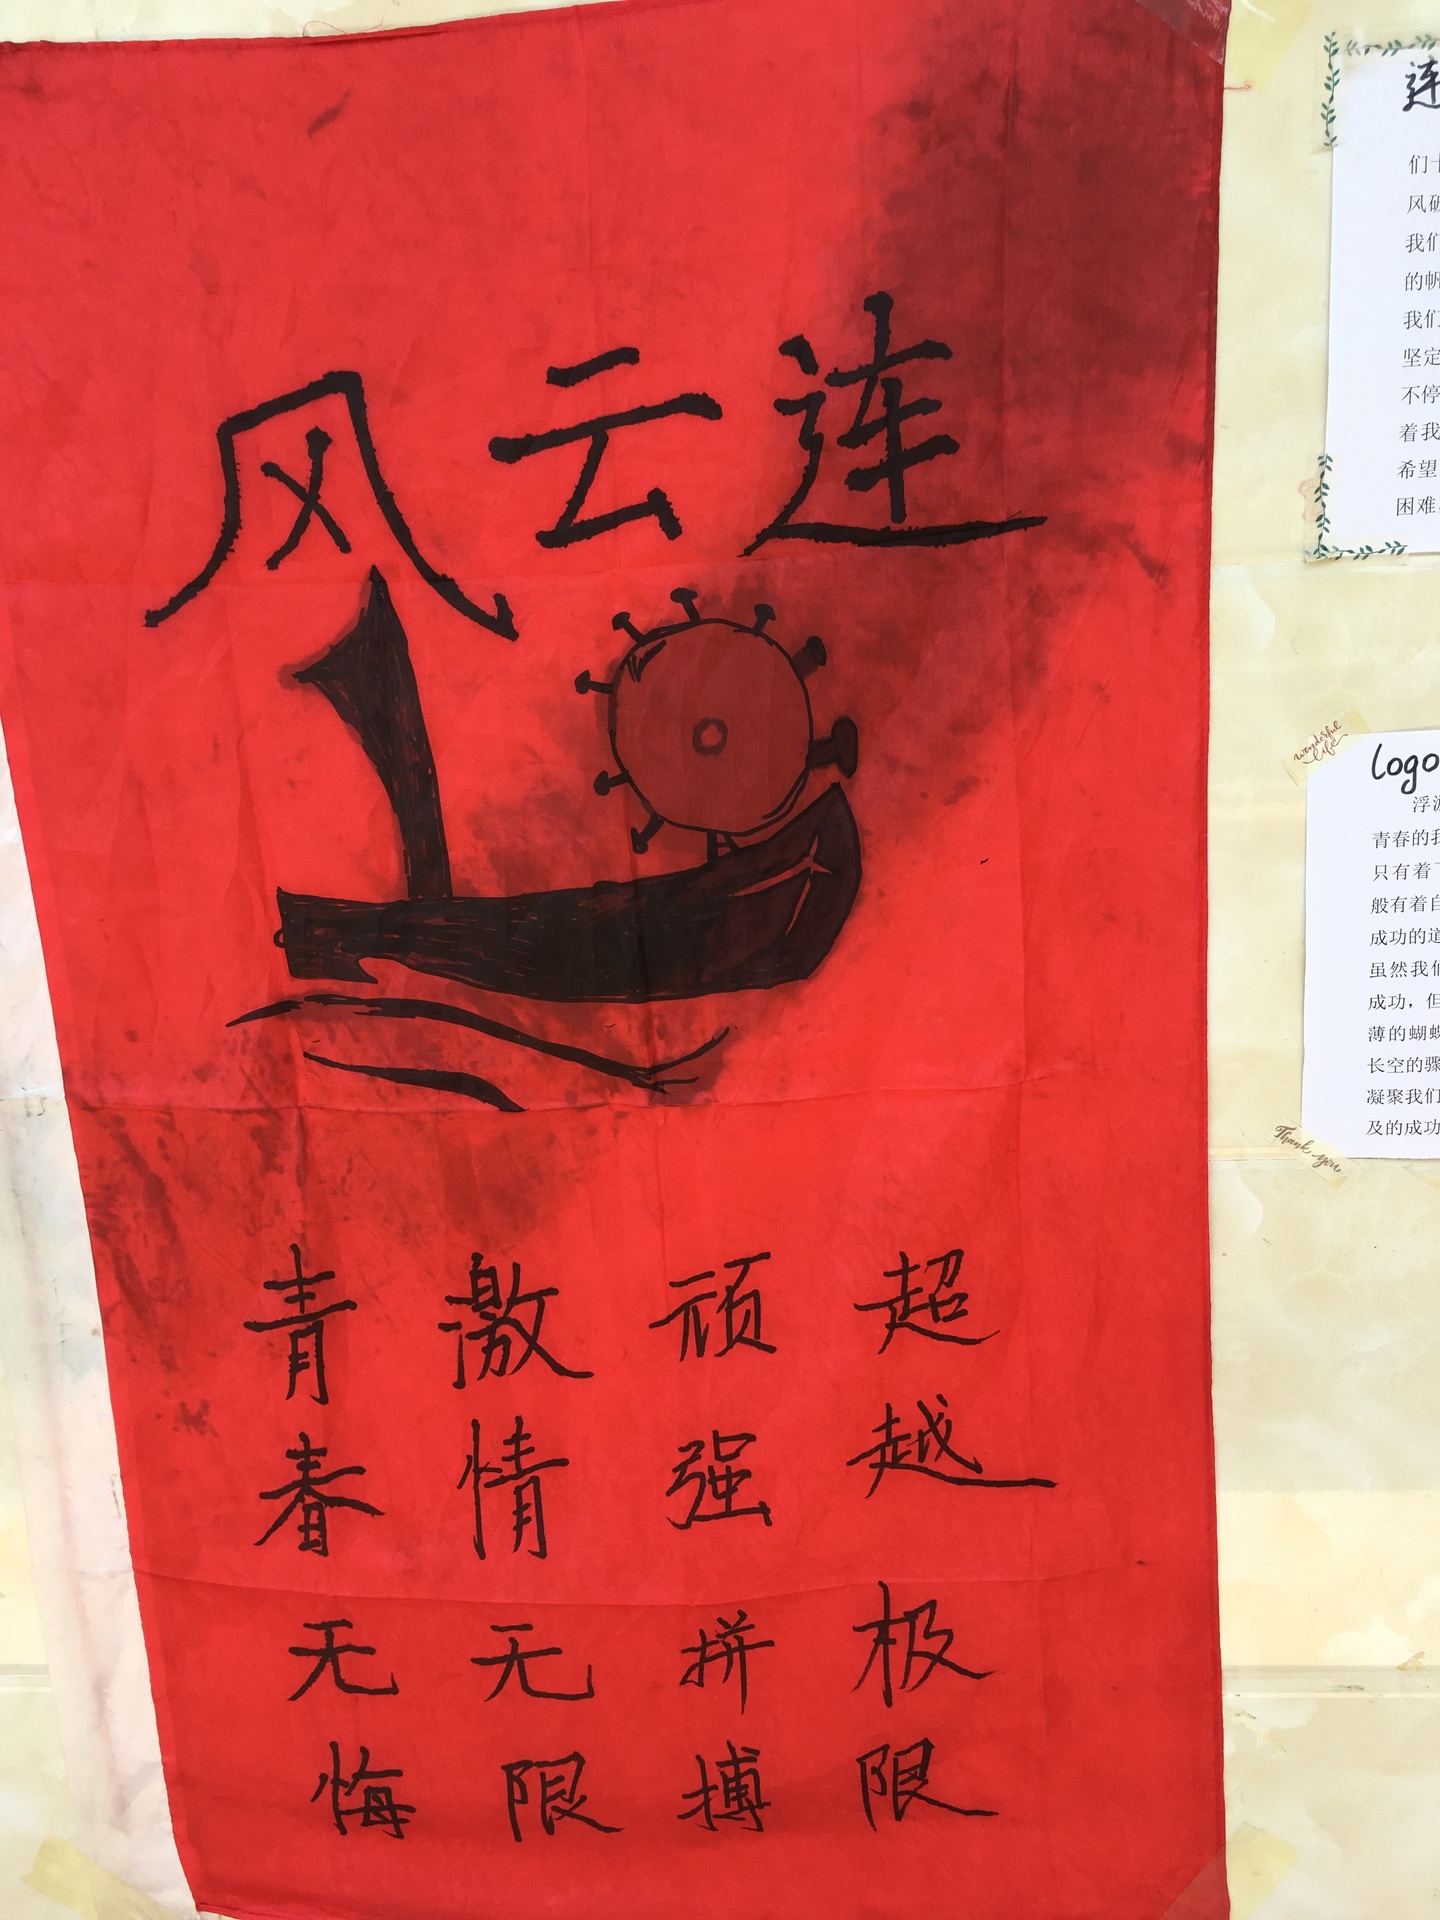 风云连
青春无悔
激情无限
顽强拼搏
超越极限
连
们十
风破
我们
的帆
我们
坚定
不停
着我
希望
困难
wonderful life
logo
浮游
青春的我
只有着
般有着自
成功的道
虽然我们
成功，但
薄的蝴蝶
长空的骤
凝聚我们
及的成功
Thank you